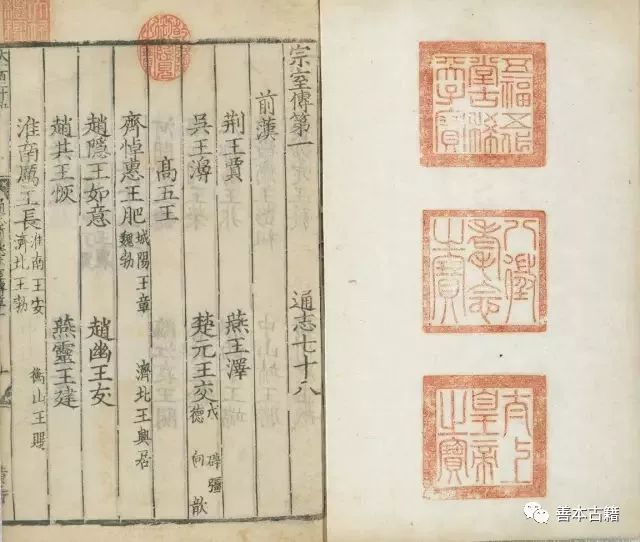 五福五代堂古稀天子寶
八徵耄念之寶
太上皇帝之寶
宗室傳第一 通志七十八
前漢
荊王賈 燕王澤
吳王濞 楚元王交 戊 辟彊 德 向 歆
高五王
齊悼惠王肥 城陽王章 魏勃 濟北王興居
趙隱王如意 趙幽王友
趙共王恢 燕靈王建
淮南厲王長 淮南王安 濟北王勃 衡山王賜
善本古籍